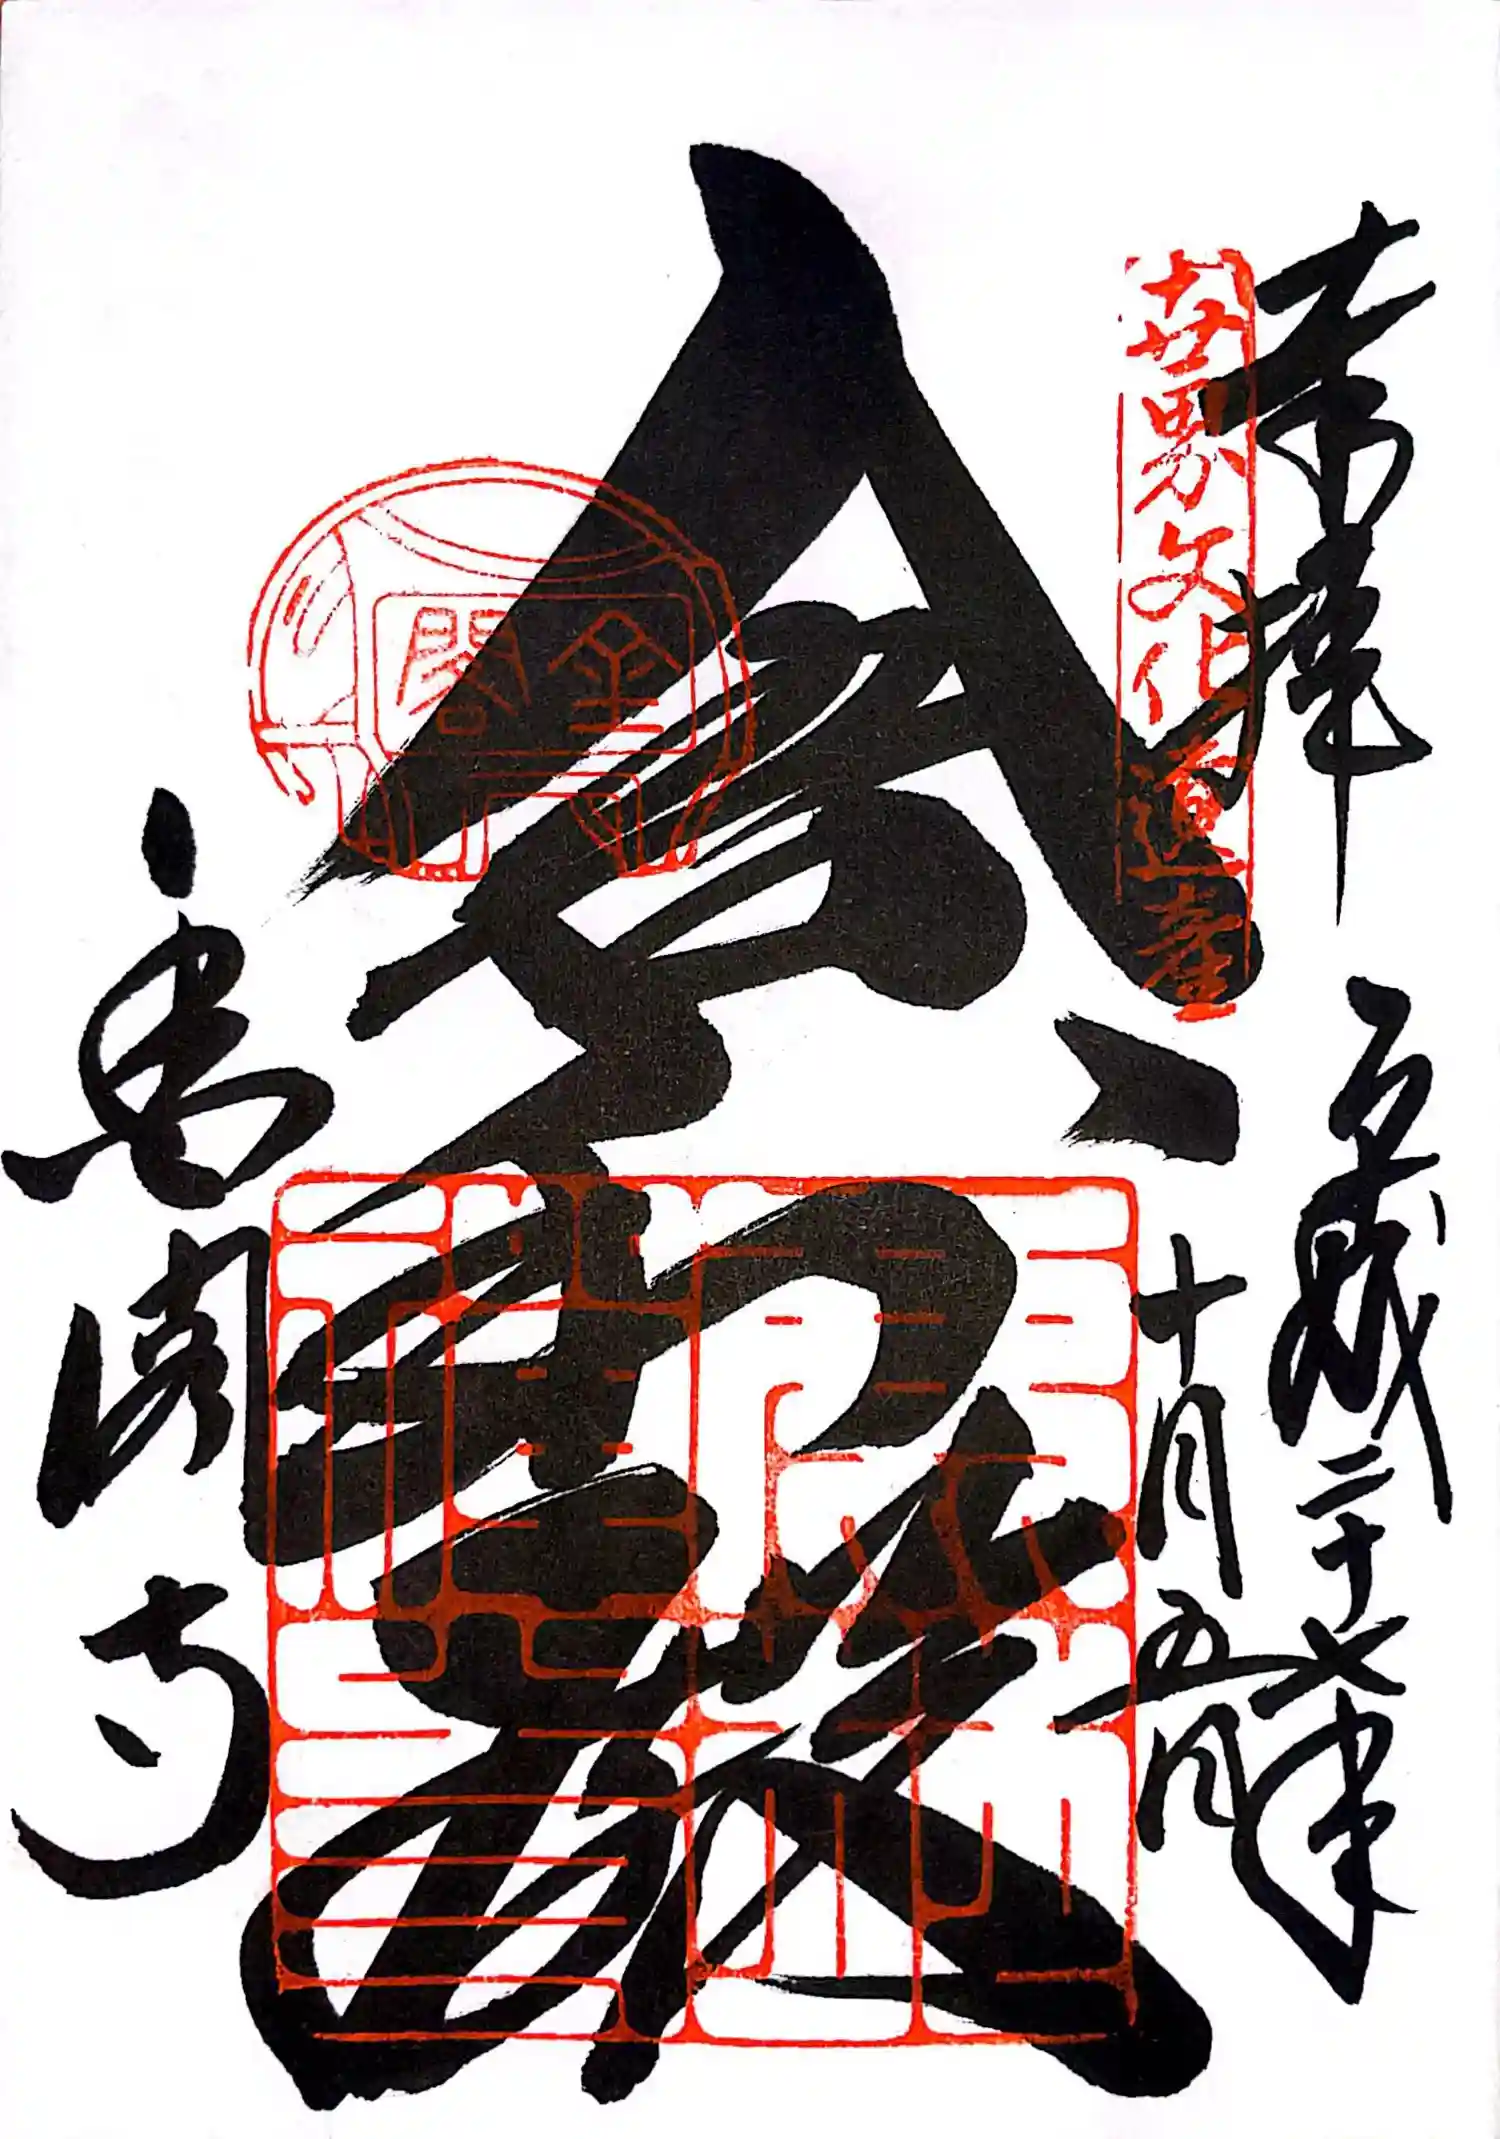 奉拝
平成二十七年
十月五日
世界文化遺産
舎利殿
金閣
金閣寺